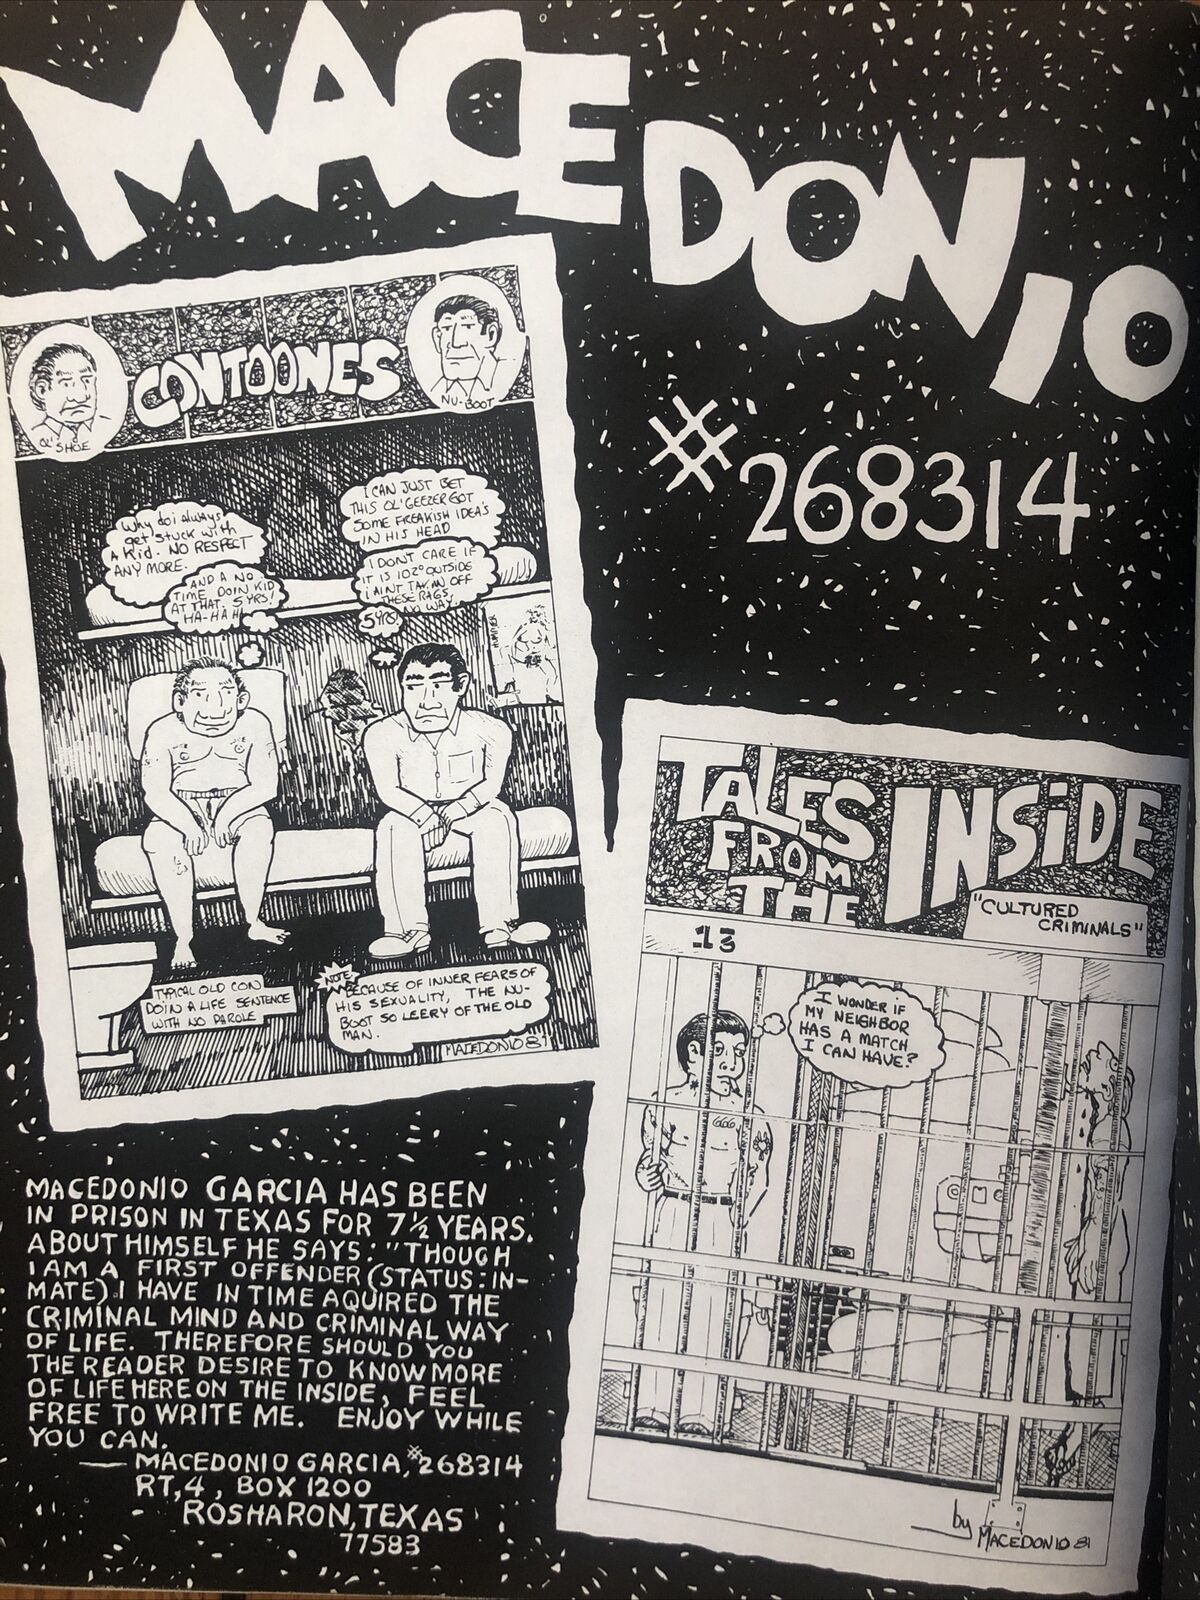 MACEDONIO
#268314
CONTOONES
OL' SHOE
NU-BOOT
Why do i always
get stuck with
A Kid. NO RESPECT
ANY MORE.
AND A NO
TIME DOIN KID
AT THAT. 5 YRS!
HA-HA H
I CAN JUST BET
THIS OL' GEEZER GOT
SOME FREAKISH IDEA'S
IN HIS HEAD
I DONT CARE IF
IT IS 102° OUTSIDE
I AINT TAKIN OFF
THESE RAGS
NO WAY
5 YRS
TYPICAL OLD CON
DOIN A LIFE SENTENCE
WITH NO PAROLE
NOTE
BECAUSE OF INNER FEARS OF
HIS SEXUALITY, THE NU-
BOOT SO LEERY OF THE OLD
MAN.
MACEDONIO 81
TALES
FROM
THE
INSiDE
"CULTURED
CRIMINALS"
13
I WONDER IF
MY NEIGHBOR
HAS A MATCH
I CAN HAVE?
666
by MACEDONIO 81
MACEDONIO GARCIA HAS BEEN
IN PRISON IN TEXAS FOR 7½ YEARS.
ABOUT HIMSELF HE SAYS: "THOUGH
I AM A FIRST OFFENDER (STATUS: IN-
MATE) I HAVE IN TIME AQUIRED THE
CRIMINAL MIND AND CRIMINAL WAY
OF LIFE. THEREFORE SHOULD YOU
THE READER DESIRE TO KNOW MORE
OF LIFE HERE ON THE INSIDE, FEEL
FREE TO WRITE ME. ENJOY WHILE
YOU CAN.
— MACEDONIO GARCIA, #268314
RT, 4, BOX 1200
ROSHARON, TEXAS
77583